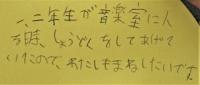 一、二年生が音楽室に入
る時、しょうどくをしてあげて
いたので、わたしもまねしたいです。